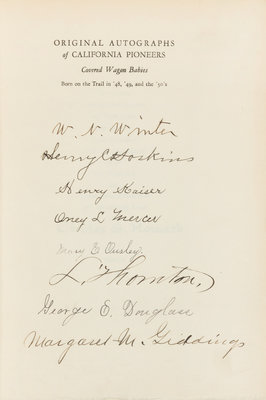 ORIGINAL AUTOGRAPHS
of CALIFORNIA PIONEERS
Covered Wagon Babies
Born on the Trail in '48, '49, and the '50's
W. N. Winter
Henry C Hoskins
Henry Kaiser
Oney L Mercer
Mary E Ousley.
L. Thornton,
George E. Douglass
Margaret M. Giddings